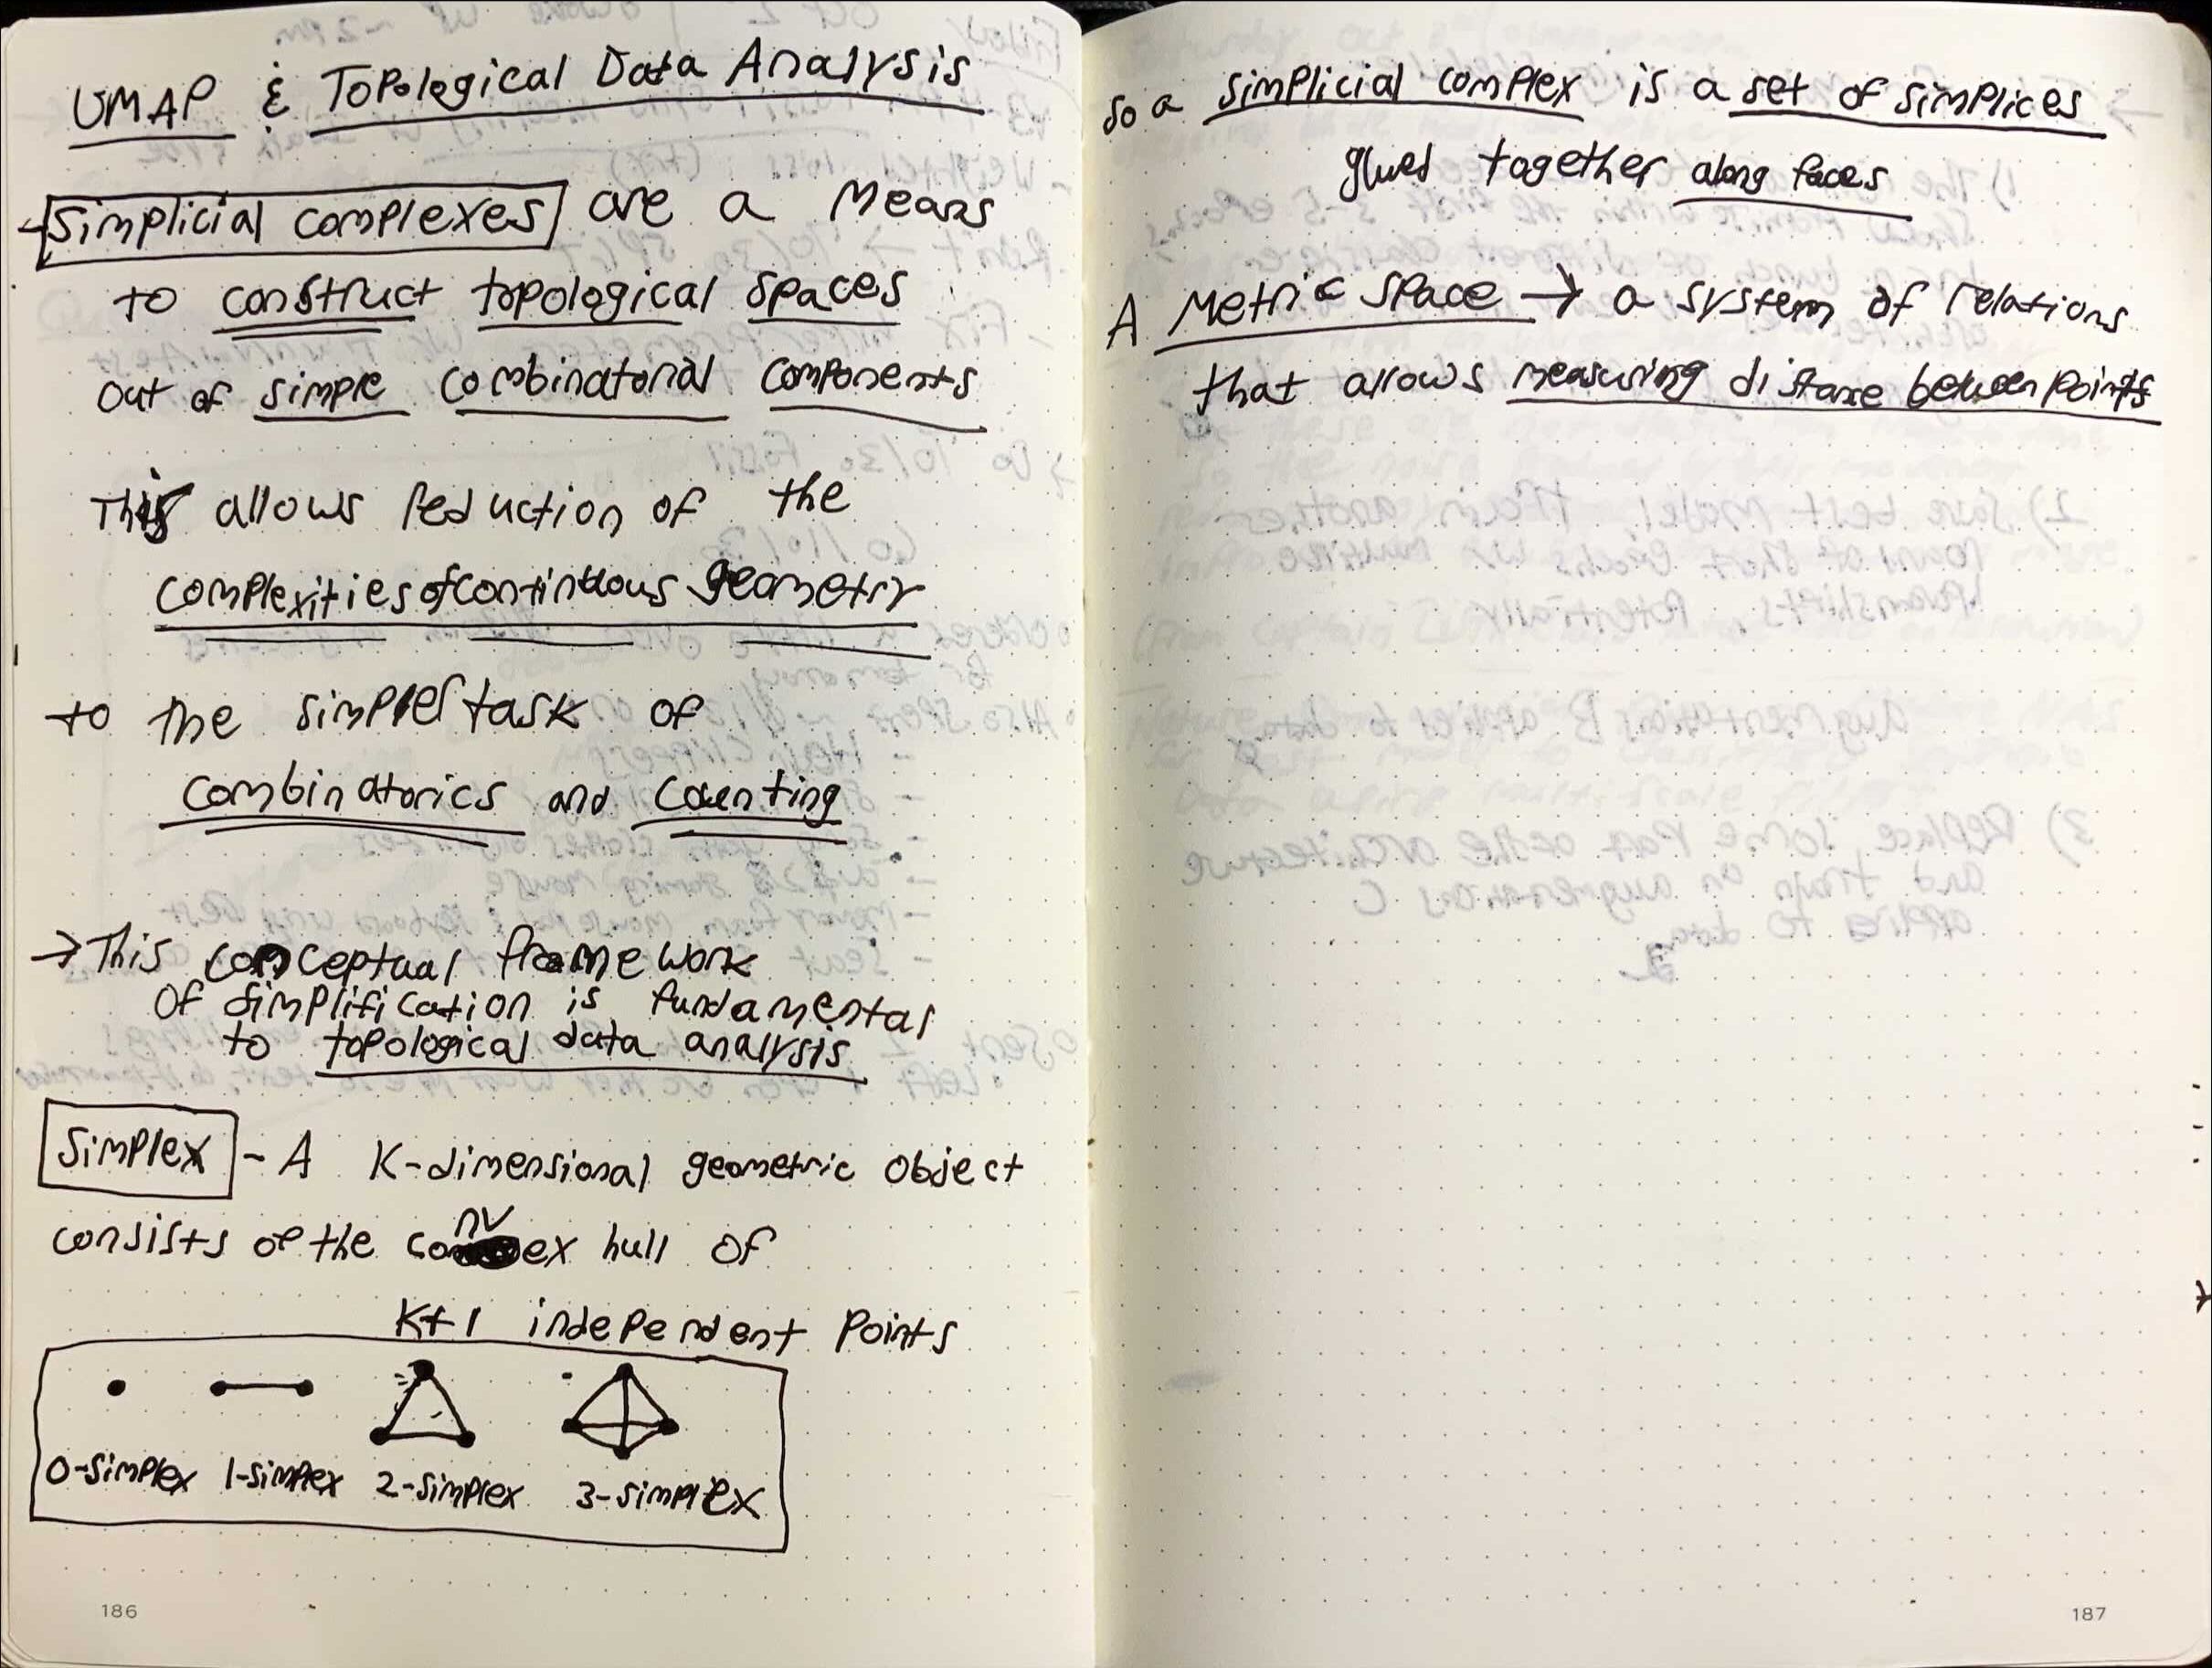 UMAP & Topological Data Analysis
- Simplicial complexes are a means
to construct topological spaces
out of simple combinatorial components
This allows reduction of the
complexities of continuous geometry
to the simpler task of
combinatorics and counting
→ This conceptual framework
of simplification is fundamental
to topological data analysis
Simplex - A K-dimensional geometric object
consists of the convex hull of
K+1 independent points
0-simplex 1-simplex 2-simplex 3-simplex
186
so a simplicial complex is a set of simplices
glued together along faces
A metric space → a system of relations
that allows measuring distance between points
187